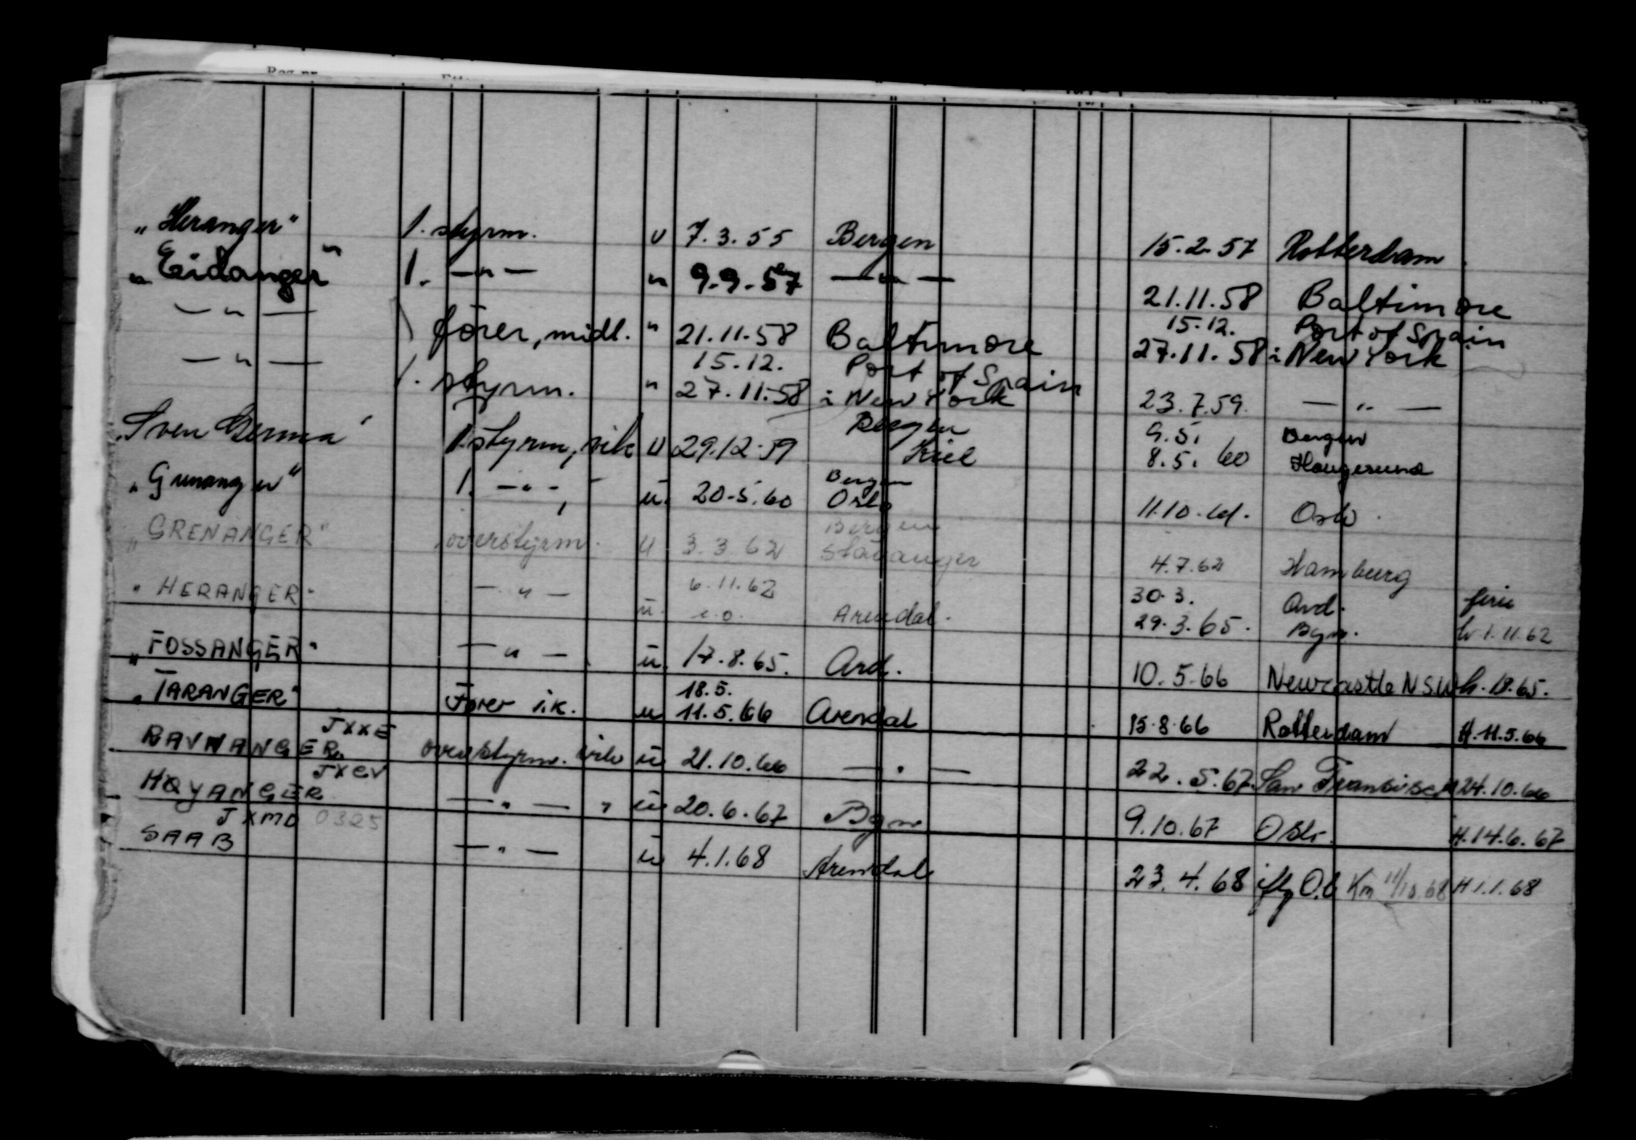 „Heranger" 1. styrm. u 7.3.55 Bergen 15.2.57 Rotterdam
„Eidanger" 1. —"— " 9.9.57 —"— 21.11.58 Baltimore
—"— fører, midl. " 21.11.58 Baltimore 15.12. Port of Spain
15.12. Port of Spain 27.11.58 i New York
—"— 1. styrm. " 27.11.58 i New York 23.7.59 —"—
Bergen 9.5. Bergen
Sven Germa 1. styrm, vik u 29.12.59 Kiel 8.5.60 Haugesund
Bergen
„Grenanger" 1. —"— u. 20.5.60 Oslo 11.10.61. Oslo
Bergen
„GRENANGER" overstyrm. u 3.3.62 Stavanger 4.7.62 Hamburg
6.11.62 30.3. Ard. ferie
"HERANGER" —"— u. u.o. Arendal. 29.3.65. Bgn. h 1.11.62
„FOSSANGER" —"— u. 17.8.65. Ard. 10.5.66 Newcastle NSW
18.5.
„TARANGER" Fører v.k. u 11.5.66 Arendal 15.8.66 Rotterdam H.11.5.66
JXXE
RAVNANGER. overstyrm. vik u 21.10.66 —"— 22.5.67 San Fransisco 24.10.66
JXCV
HØYANGER —"— " u 20.6.67 Bgn 9.10.67 Oslo. H.14.6.67
JXMD 0325
SAAB —"— u 4.1.68 Arendal 23.4.68 H 1.1.68